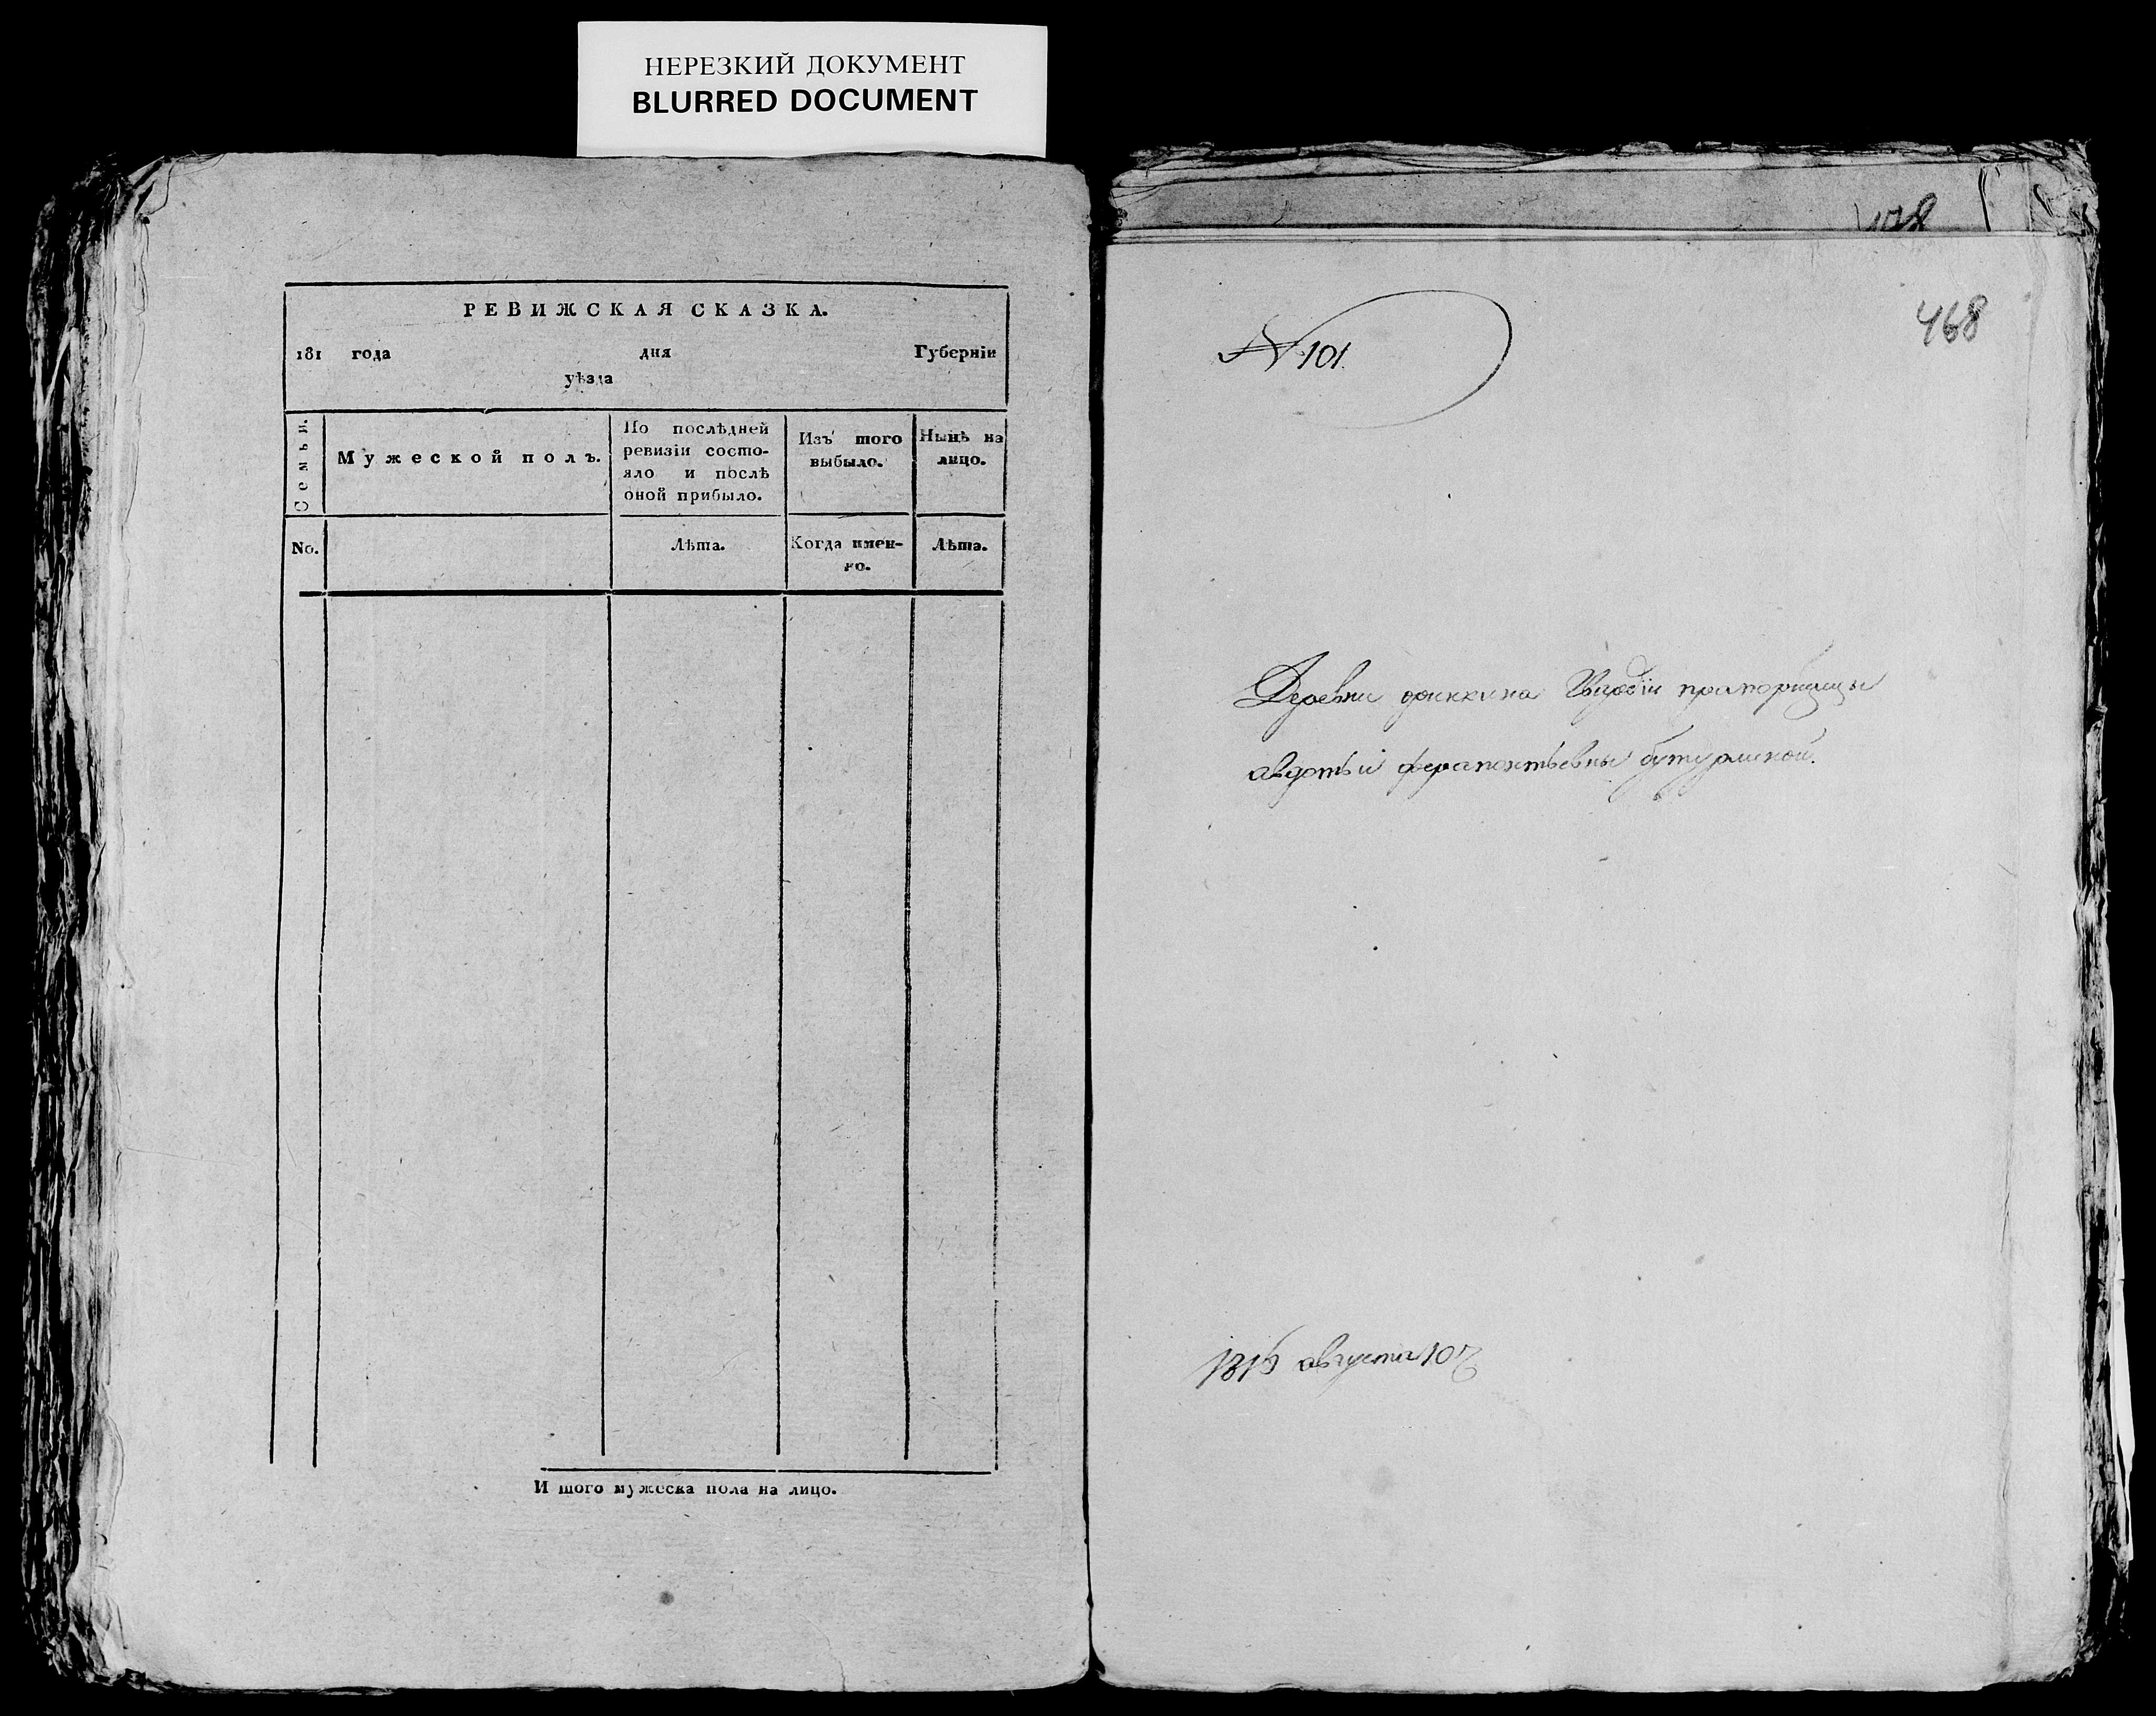 НЕРЕЗКИЙ ДОКУМЕНТ
BLURRED DOCUMENT
РЕВИЖСКАЯ СКАЗКА.
181 года дня Губерніи
уѣзда
Семьи.
Мужеской полъ.
По послѣдней
ревизіи состо-
яло и послѣ
оной прибыло.
Изъ того
выбыло.
Нынѣ на
лицо.
No.
Лѣта.
Когда имен-
но.
Лѣта.
И того мужеска пола на лицо.
468
N 101.
Деревни Гвардіи прапорщицы
авдотьи ферапонтьевны бутурлиной.
августа 10